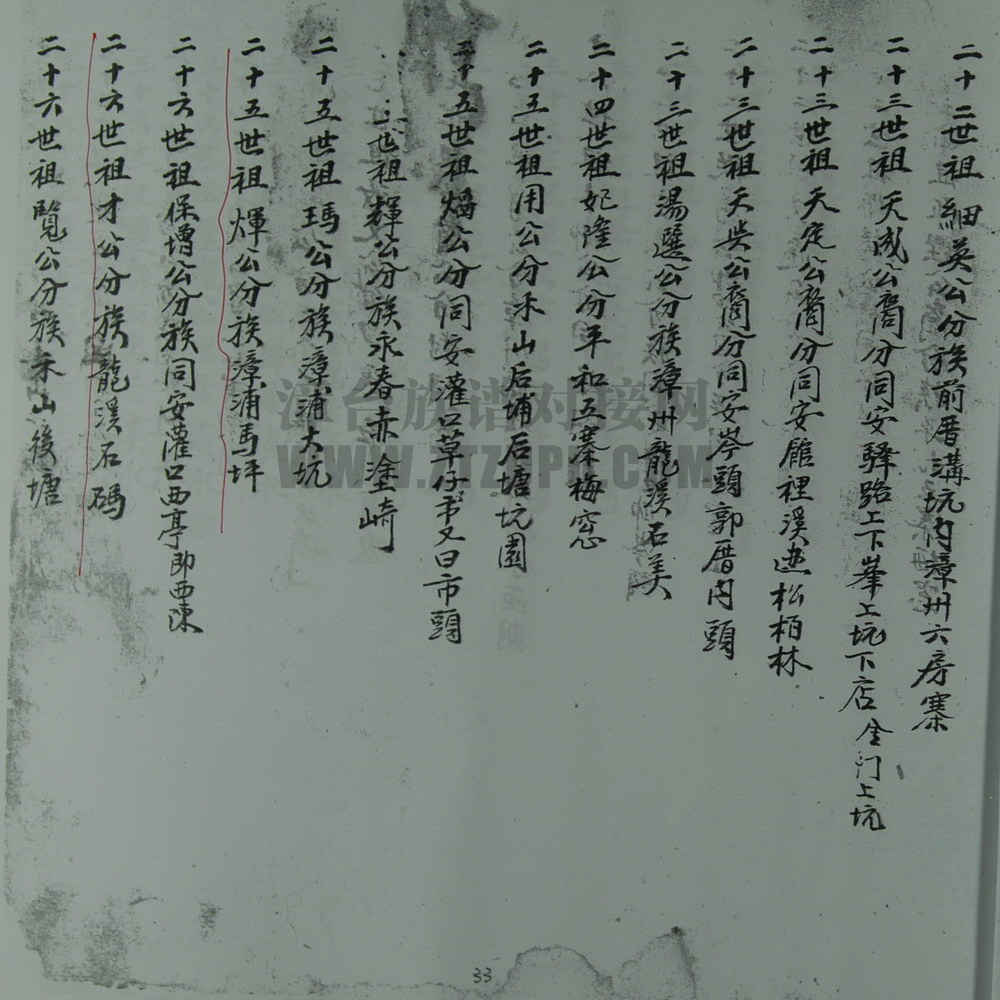 二十二世祖細英公分族前厝溝坑內漳州六房寨
二十三世祖天成公裔分同安驛路上下峯上坑下店金门上坑
二十三世祖天定公裔分同安 裡溪邊松柏林
二十三世祖天 公裔分同安岑頭郭厝内頭
二十三世祖湯選公分族漳州龍溪石美
二十四世祖妃隆公分平和五寨梅窓
二十五世祖用公分禾山后埔后塘坑園
二十五世祖 公分同安灌口草仔市又曰市頭
世祖輝公分族永春赤塗崎
二十五世祖瑪公分族漳浦大坑
二十五世祖煇公分族漳浦馬坪
二十六世祖保增公分族同安灌口西亭即西陳
二十六世祖才公分族龍溪石碼
二十六世祖覽公分族禾山後塘
33
台族谱对接网